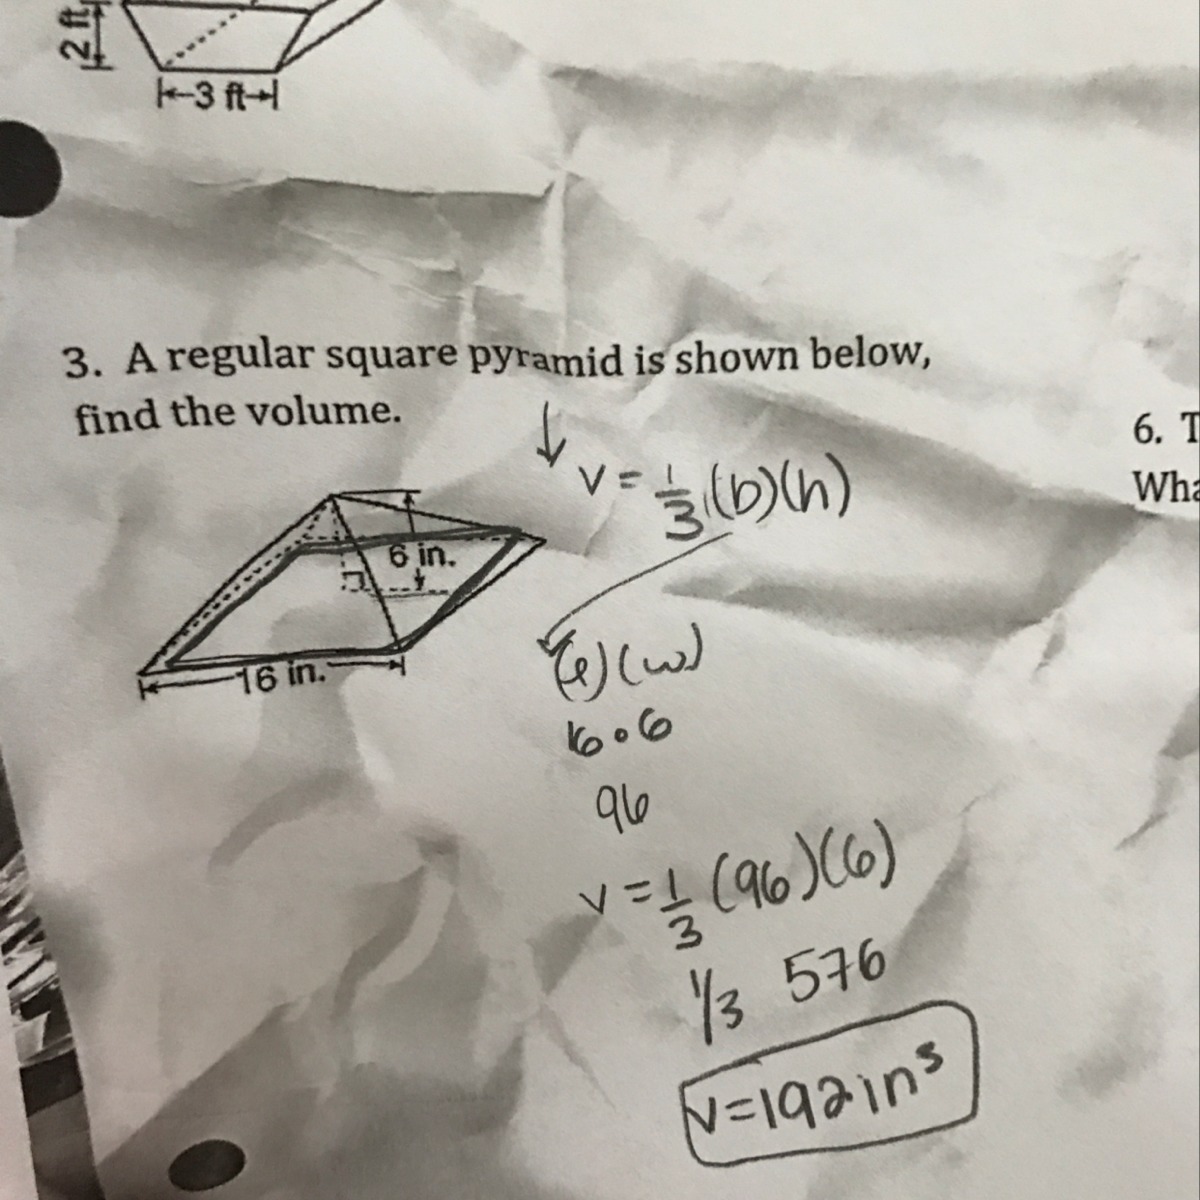 2 ft
3 ft
3. A regular square pyramid is shown below,
find the volume.
6. T
Wha
V = 1/3 (b)(h)
6 in.
16 in.
(l)(w)
16 • 6
96
V = 1/3 (96)(6)
1/3 576
V=192in³